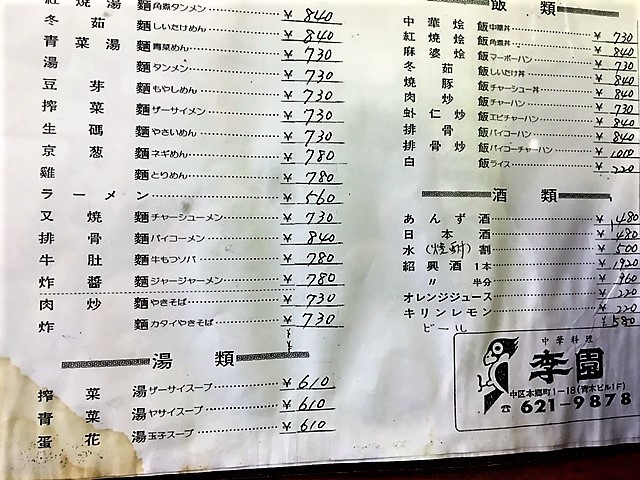 紅焼湯麵角煮タンメン ¥840
冬茹 麵しいたけめん ¥840
青菜湯麵青菜めん ¥730
湯 麵タンメン ¥730
豆芽 麵もやしめん ¥730
搾菜 麵ザーサイメン ¥730
生碼 麵やさいめん ¥730
京葱 麵ネギめん ¥780
雞 麵とりめん ¥780
ラーメン ¥560
叉焼 麵チャーシューメン ¥730
排骨 麵パイコーメン ¥840
牛肚 麵牛もツソバ ¥780
炸醬 麵ジャージャーメン ¥780
肉炒 麵やきそば ¥730
炸 麵カタイやきそば ¥730
¥
¥
湯類
搾菜湯ザーサイスープ ¥610
青菜湯ヤサイスープ ¥610
蛋花湯玉子スープ ¥610
飯類
中華烩飯中華丼 ¥730
紅焼烩飯角煮丼 ¥840
麻婆烩飯マーボーハン ¥730
冬茹 飯しいたけ丼 ¥840
焼豚 飯チャーシュー丼 ¥840
肉炒 飯チャーハン ¥730
虾仁炒飯エビチャーハン ¥840
排骨 飯パイコーハン ¥840
排骨炒飯パイコーチャーハン ¥1000
白 飯ライス ¥220
酒類
あんず酒 ¥480
日本酒 ¥480
水(焼酎)割 ¥500
紹興酒 1本 ¥1920
〃 半分 ¥960
オレンジジュース ¥220
キリンレモン ¥220
ビール ¥580
中華料理
李園
中区本郷町1-18(青木ビル1F)
☎621-9878